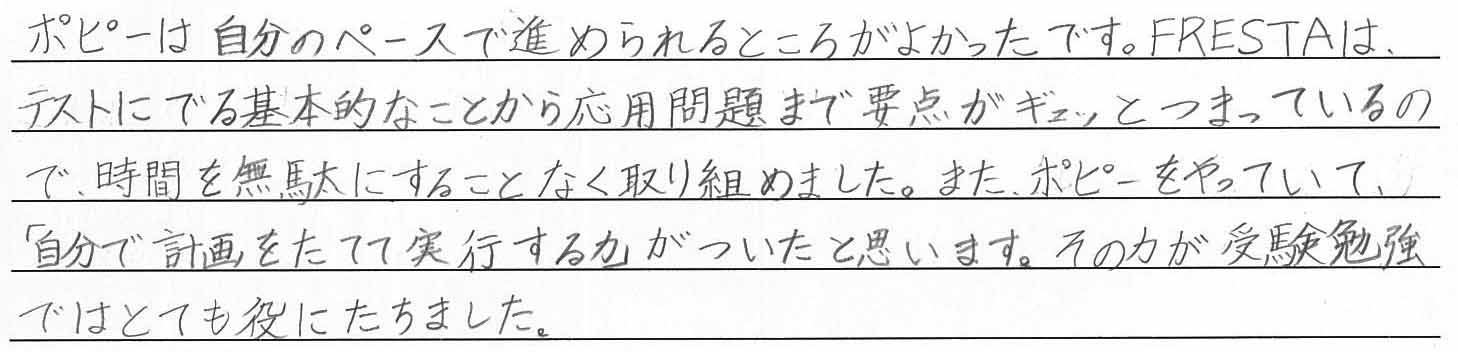 ポピーは自分のペースで進められるところがよかったです。FRESTAは、
テストにでる基本的なことから応用問題まで要点がギュッとつまっているの
で、時間を無駄にすることなく取り組めました。また、ポピーをやっていて、
「自分で計画をたてて実行する力」がついたと思います。その力が受験勉強
ではとても役にたちました。